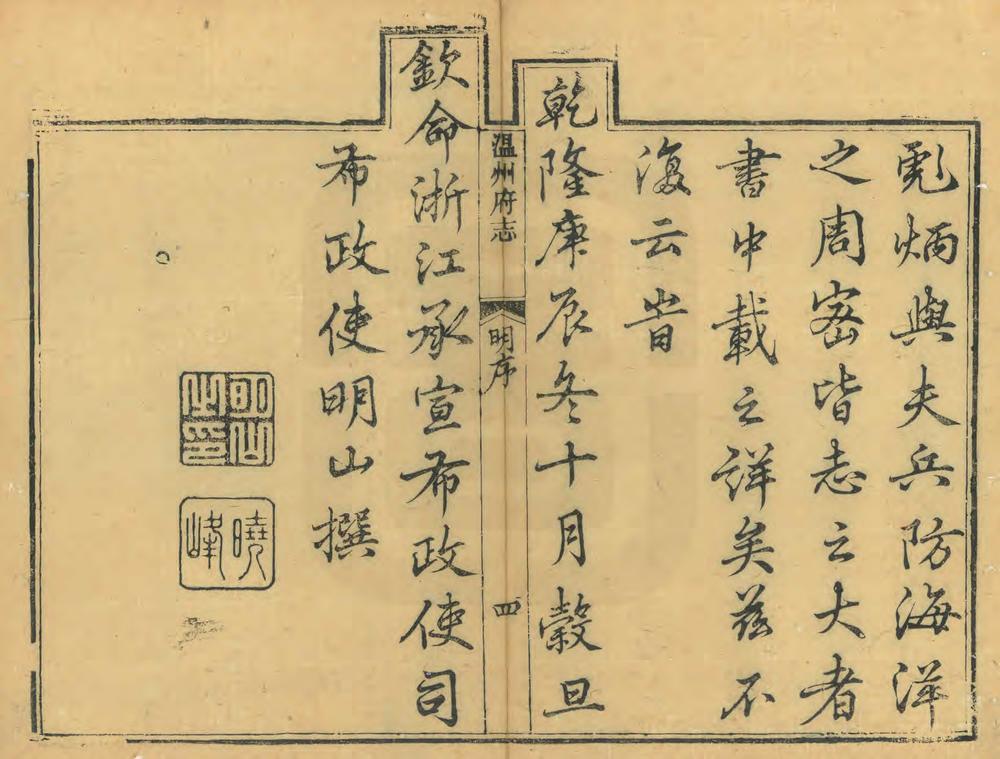 彪炳與夫兵防海洋
之周密皆志之大者
書中載之詳矣茲不
復云旹
乾隆庚辰冬十月穀旦
温州府志
明序
四
欽命浙江承宣布政使司
布政使明山撰
明山之印
曉峰